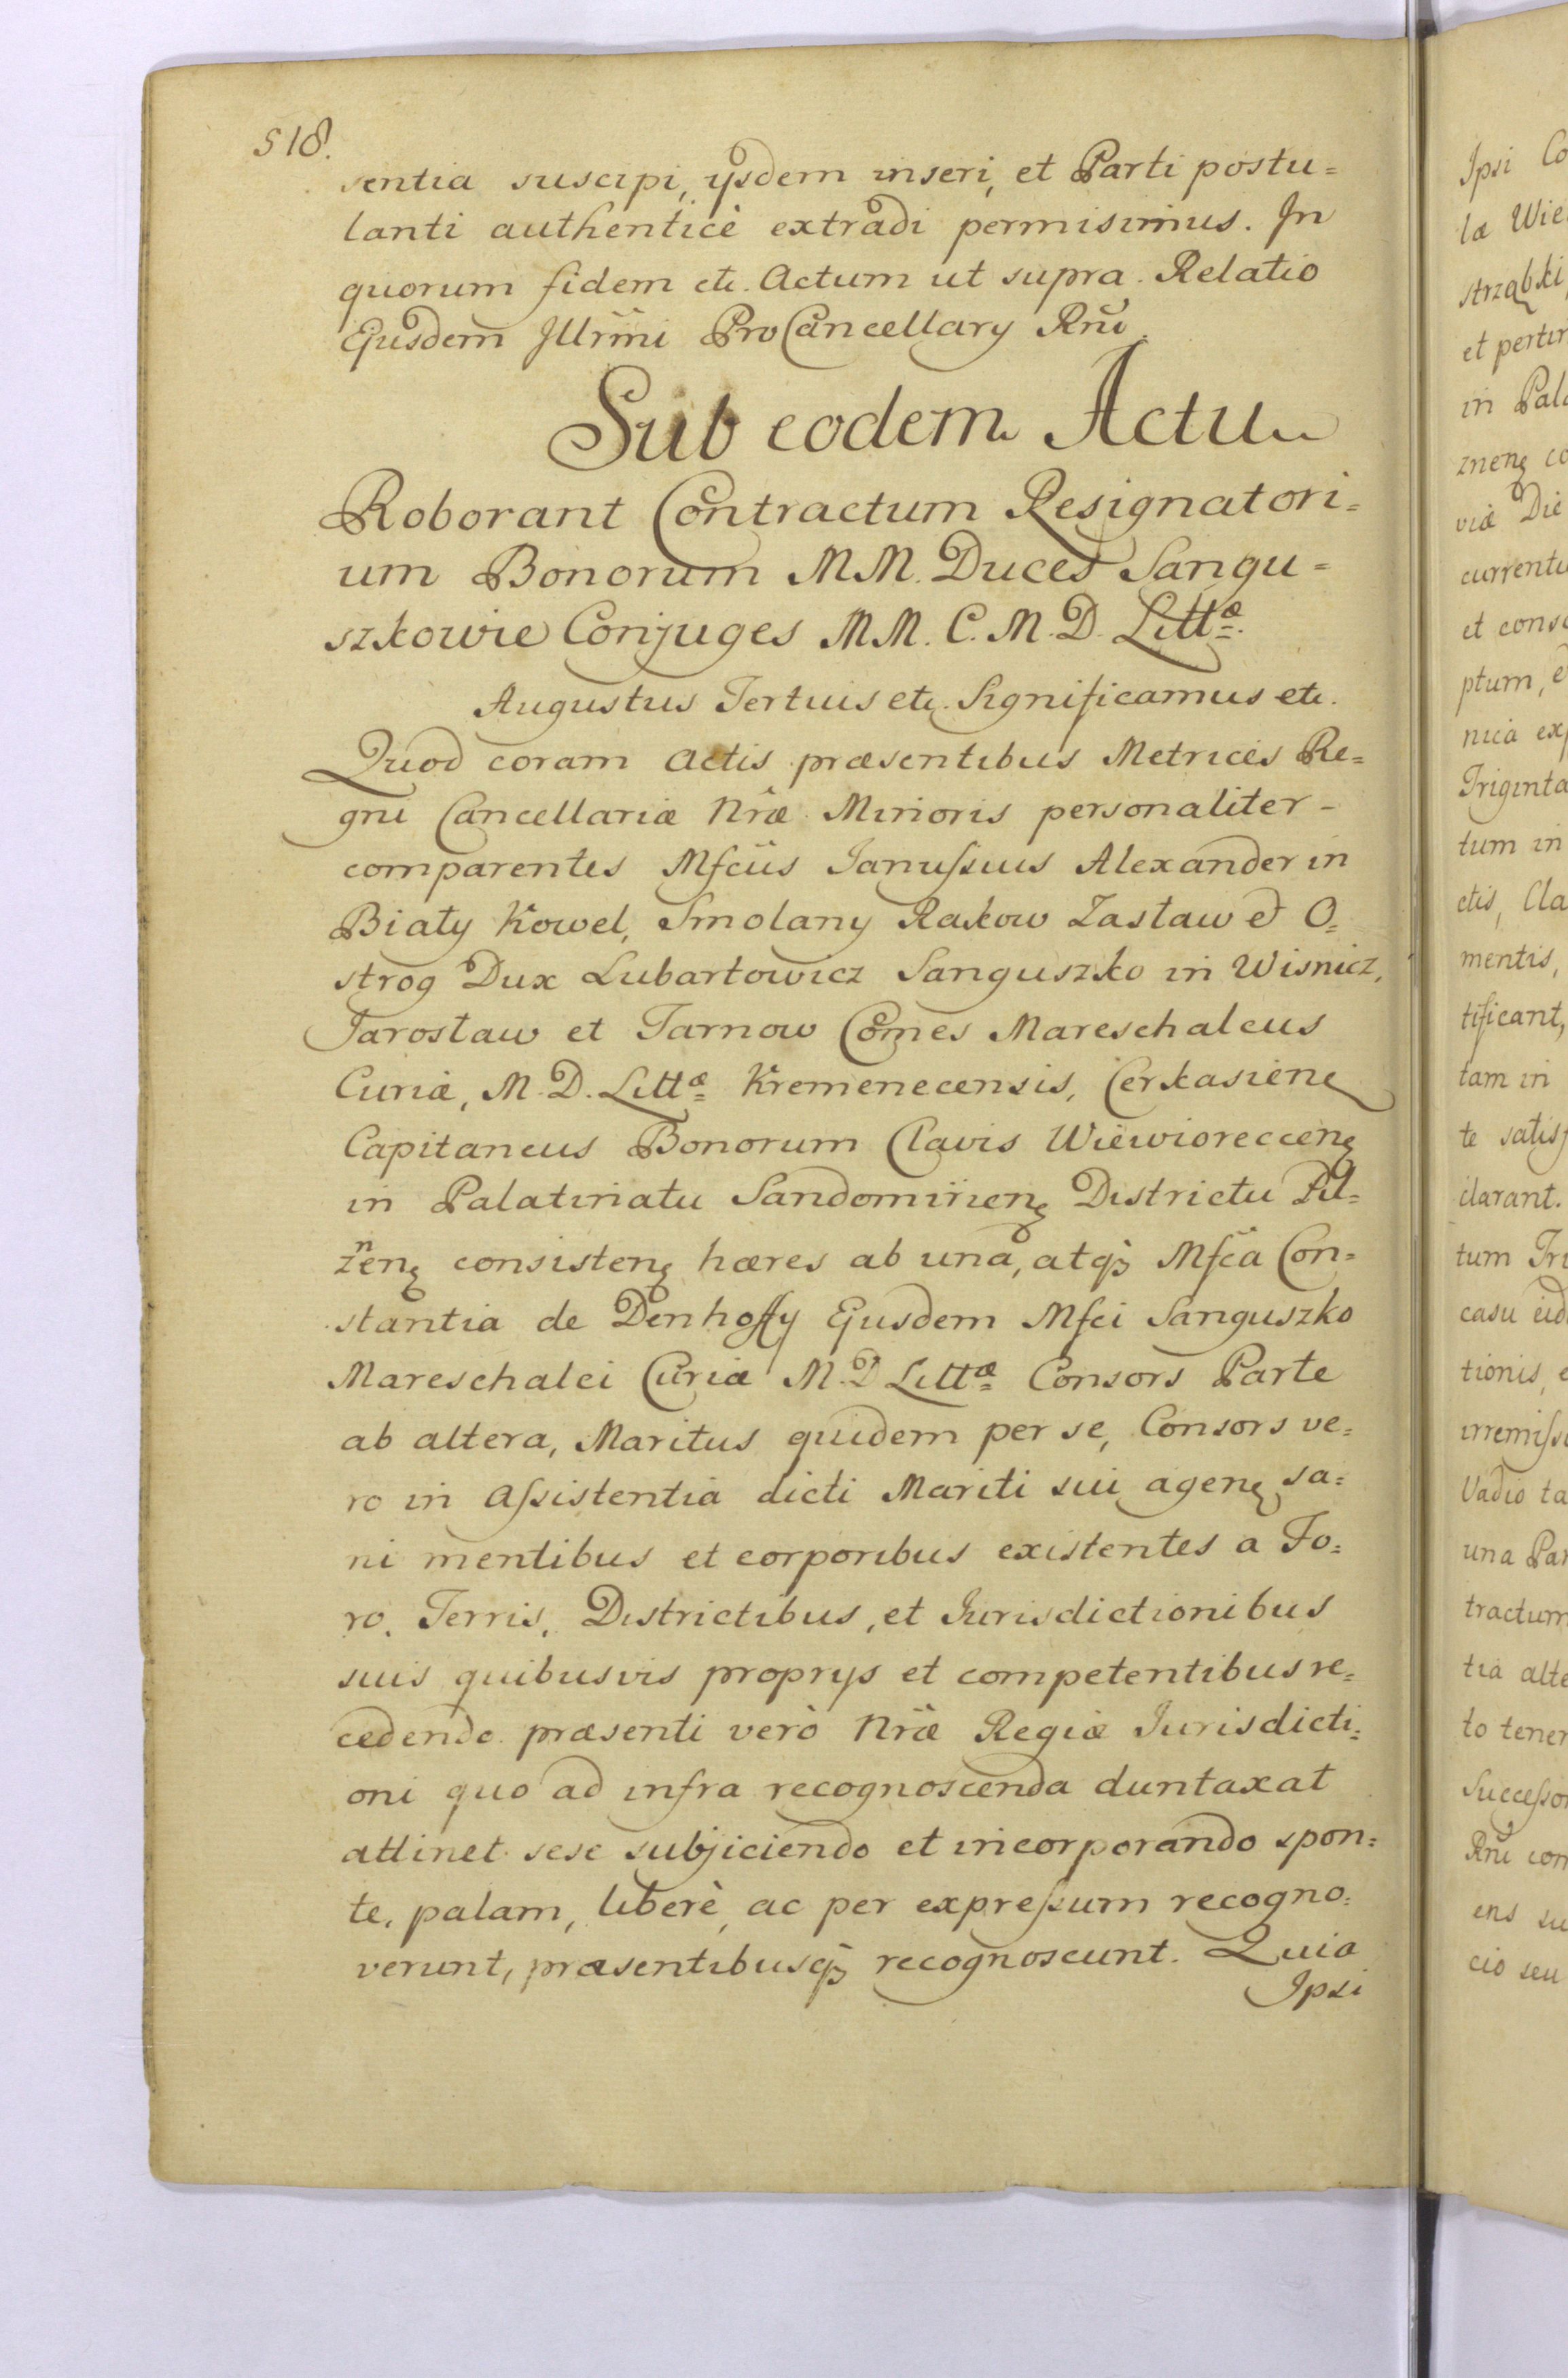 518.
sentia suscipi, ijsdem inseri, et Parti postu=
lanti authenticè extradi permisimus. In
quorum fidem etc. Actum ut supra. Relatio
Ejusdem Illrm̃i ProCancellarij Rñi.
Sub eodem Actu
Roborant Contractum Resignatori=
um Bonorum MM. Duces Sangu=
szkowie Conjuges MM. C. M. D. Littæ.
Augustus Tertuis etc. Significamus etc.
Quod coram Actis præsentibus Metrices Re=
gni Cancellariæ Nrӕ Minoris personaliter -
comparentes Mfcus Janussius Alexander in
Biały Kowel, Smolany Rakow Zasław et O=
strog Dux Lubartowicz Sanguszko in Wisnicz,
Jarosław et Tarnow Comes Mareschalcus
Curiæ, M. D. Littæ Kremenecensis, Cerkasien̄
Capitaneus Bonorum Clavis Wiewiorecceń
in Palatinatu Sandomirień Districtu Pil=
zneń consisteń hæres ab una, atq; Mfca Con=
stantia de Denhoffy Ejusdem Mfci Sanguszko
Mareschalci Curiæ M. D Littæ Consors Parte
ab altera, Maritus quidem per se, Consors ve=
ro in Assistentia dicti Mariti sui ageń sa=
ni mentibus et corporibus existentes a Fo=
ro, Terris, Districtibus, et Jurisdictionibus
suis quibusvis proprijs et competentibus re=
cedendo præsenti verò Nrӕ Regiæ Jurisdicti=
oni quo ad infra recognoscenda duntaxat
attinet sese subjiciendo et incorporando spon=
te, palam, liberè, ac per expressum recogno=
verunt, præsentibusq; recognoscunt. Quia
Ipsi
Ipsi Co
læ Wie
strząbki
et pertin
in Pala
zneń co
viæ Die
currentu
et consc
ptum, e
nica exp
Triginta
tum in
ctis, Cla
mentis,
tificant,
tam in
te satisf
clarant.
tum Tri
casu eid
tionis, e
irremissi
Vadio ta
una Par
tractum
tia alte
to tener
Successor
Rñi com
ens su
cio seu